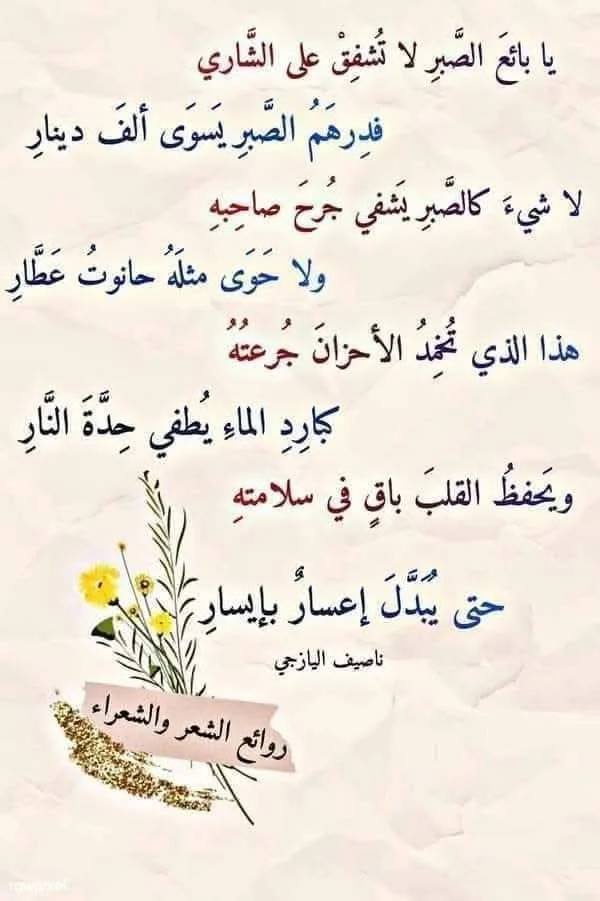 يا بائعَ الصَّبرِ لا تُشفِقْ على الشَّاري
فدِرهَمُ الصَّبرِ يَسوَى ألفَ دينارِ
لا شيءَ كالصَّبرِ يَشفي جُرحَ صاحِبهِ
ولا حَوَى مثلَهُ حانوتُ عَطَّارِ
هذا الذي تُخمِدُ الأحزانَ جُرعتُهُ
كبارِدِ الماءِ يُطفي حِدَّةَ النَّارِ
ويَحفظُ القلبَ باقٍ في سلامتهِ
حتى يُبَدَّلَ إعسارٌ بإيسارِ
ناصيف اليازجي
روائع الشعر والشعراء
rawpixel